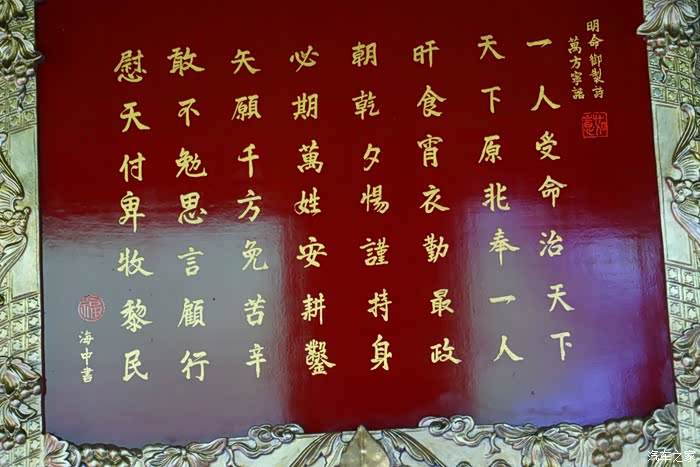 明命御製詩
萬方寧謐
一人受命治天下
天下原北奉一人
旰食宵衣勤最政
朝乾夕惕謹持身
必期萬姓安耕鑿
矢願千方免苦辛
敢不勉思言顧行
慰天付畀牧黎民
福
海中書
汽车之家